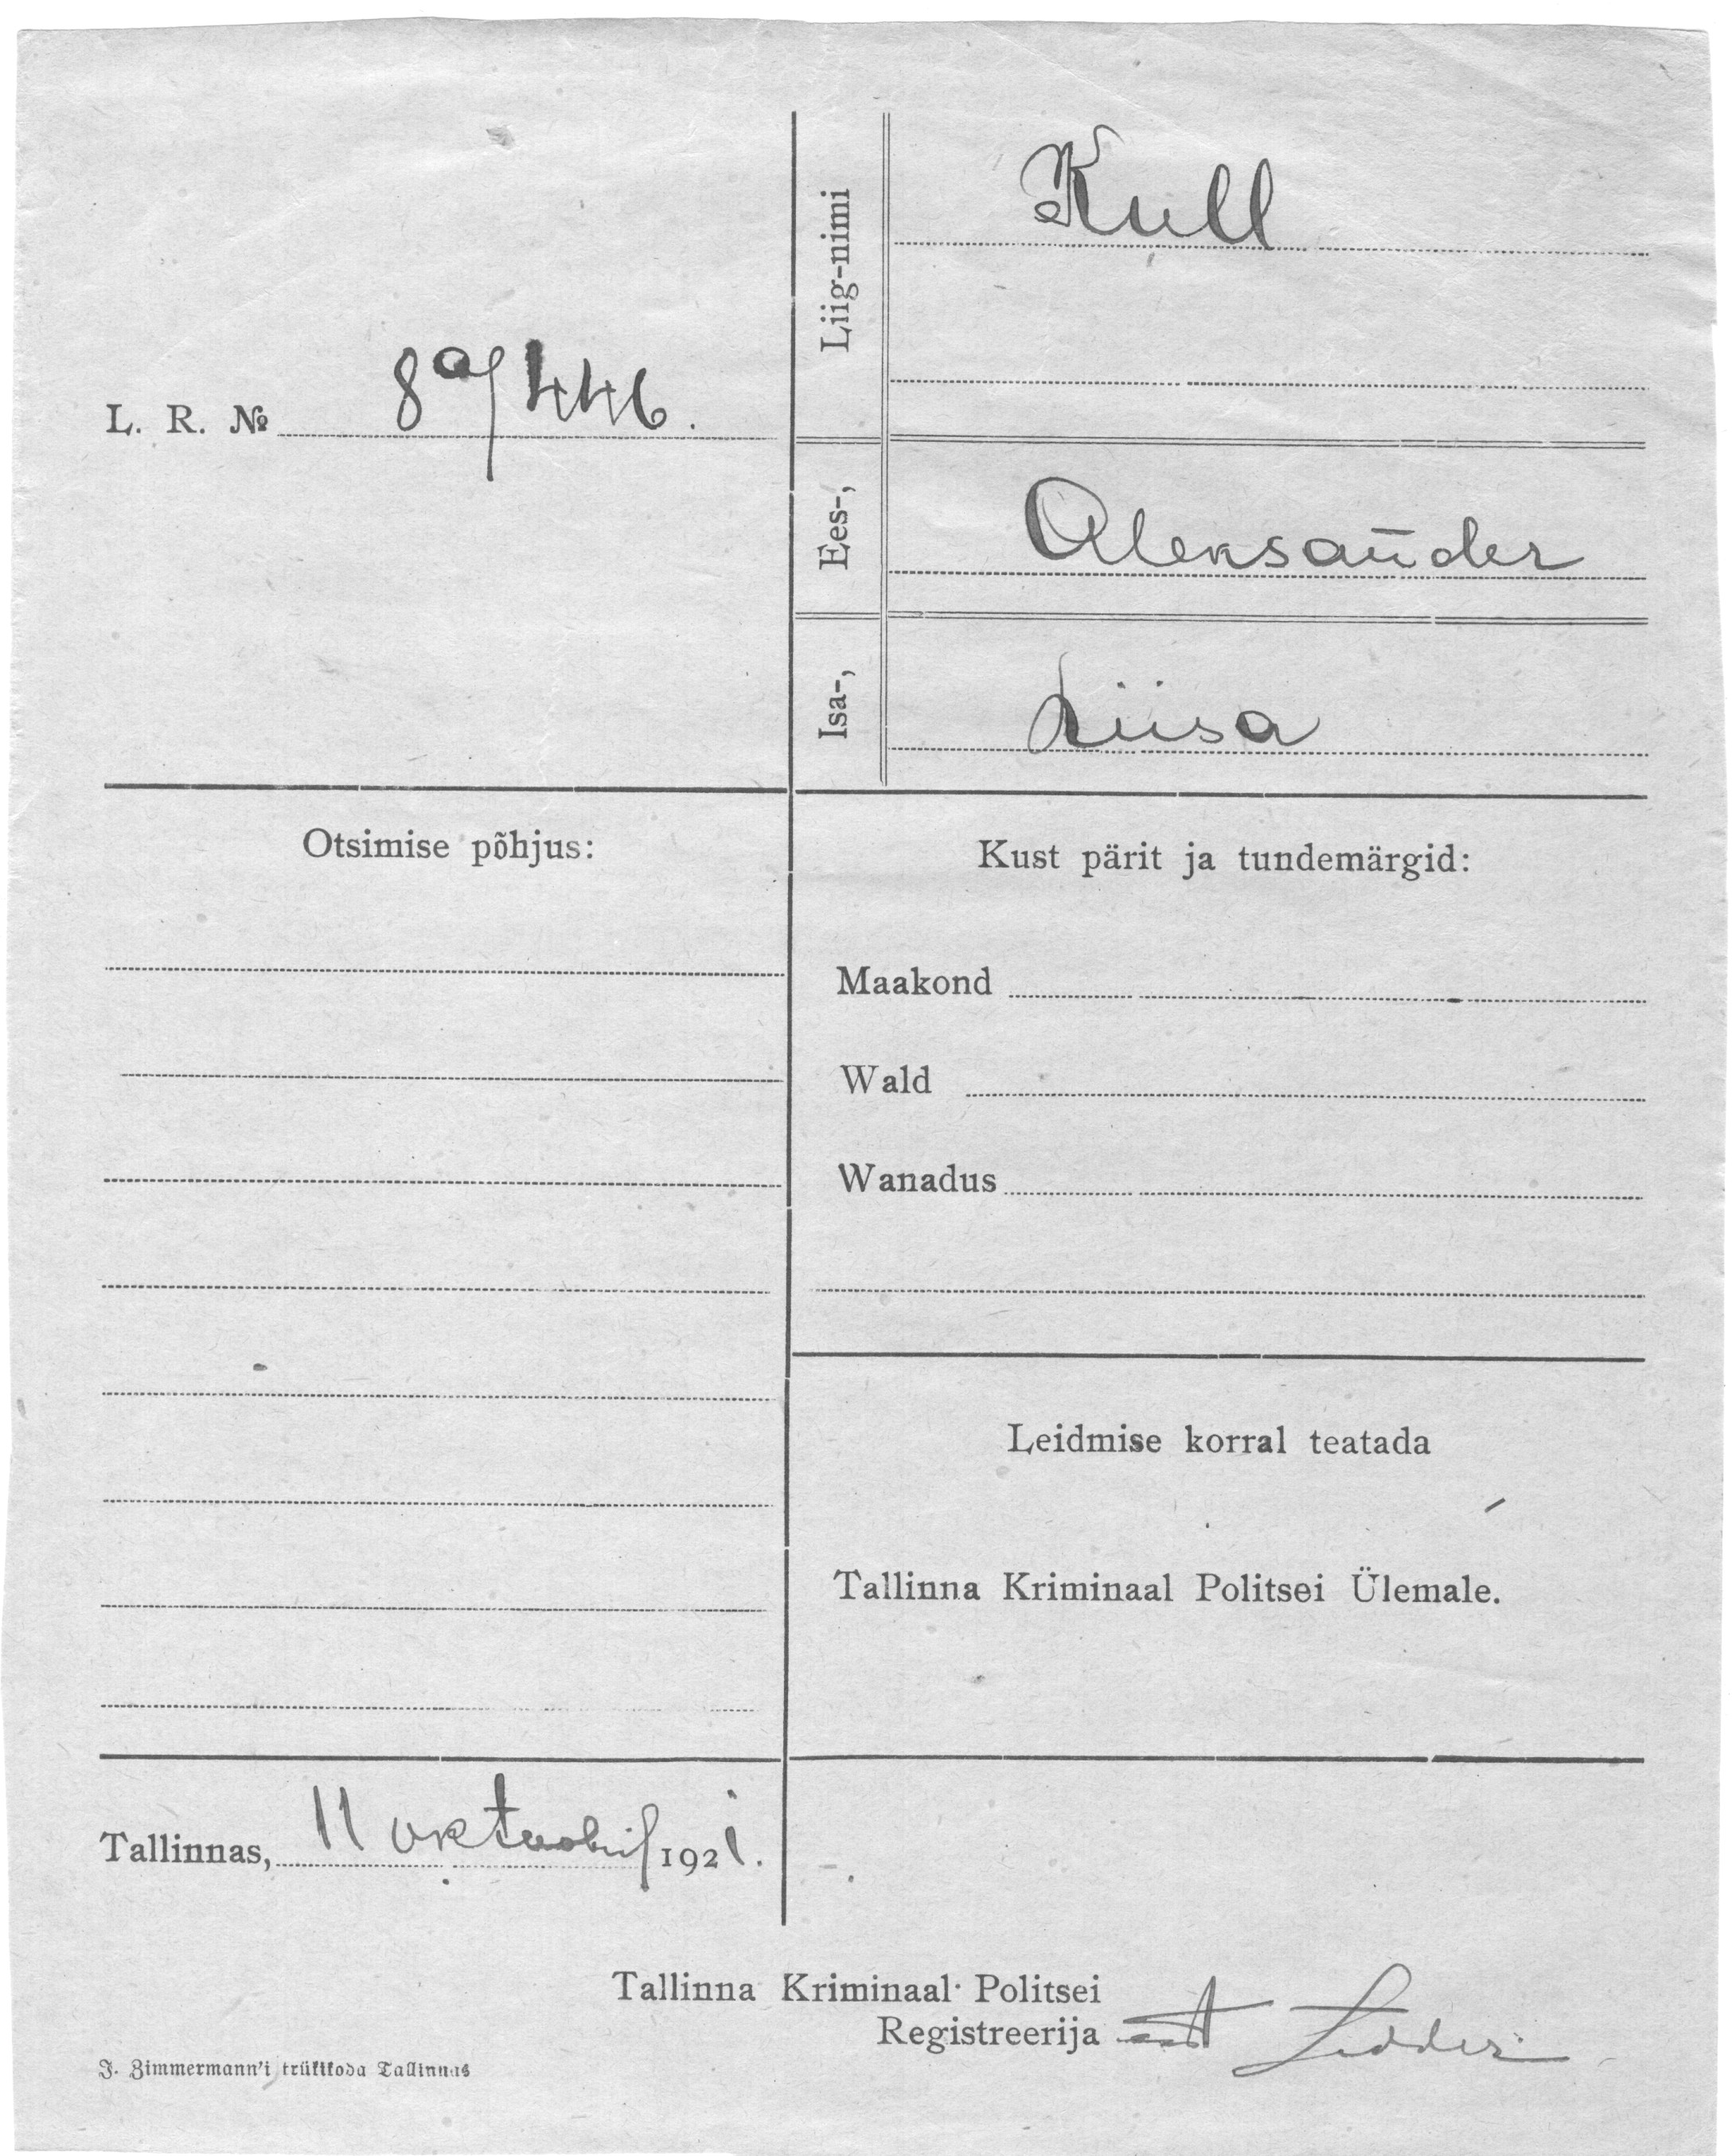 Liig-nimi
Kull
L. R. № 8a/446.
Ees-,
Aleksander
Isa-,
Liisa
Otsimise põhjus:
Kust pärit ja tundemärgid:
Maakond
Wald
Wanadus
Leidmise korral teatada
Tallinna Kriminaal Politsei Ülemale.
Tallinnas, 11 oktoobril 1921.
Tallinna Kriminaal Politsei
Registreerija
J. Zimmermann'i trükikoda Tallinnas